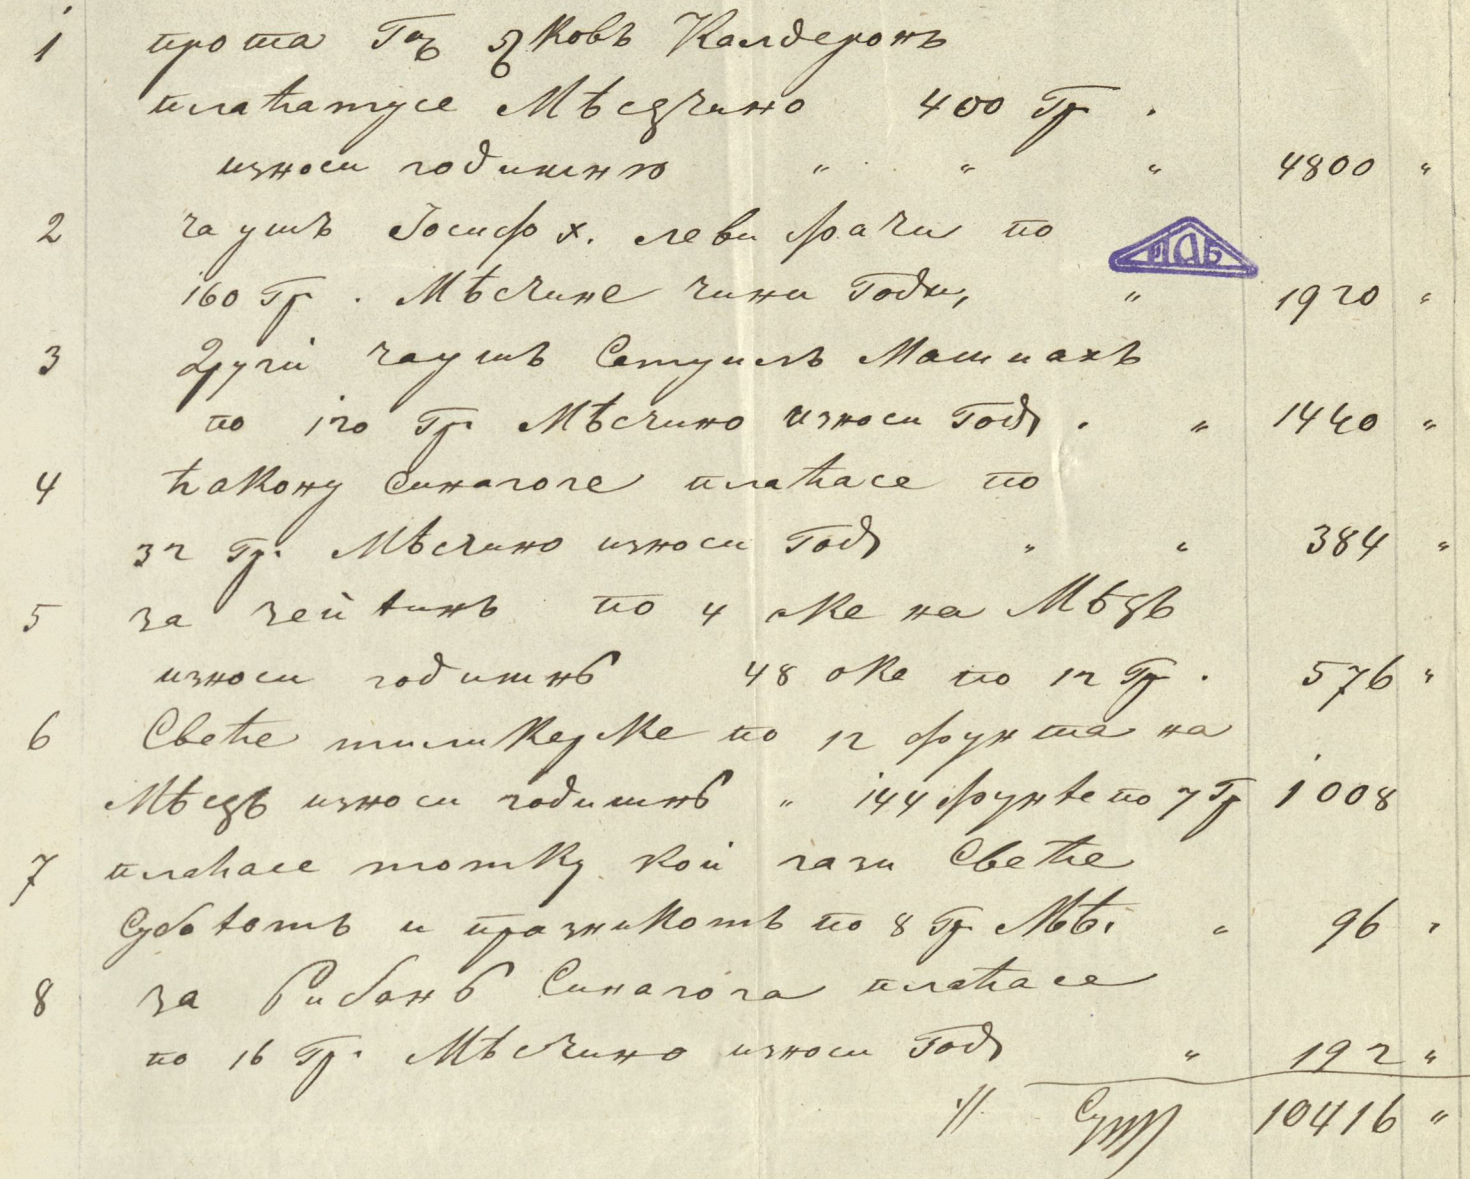 1 прота Гнъ Яковъ Калдеронъ
плаћатусе Мѣсечино 400 Гр.
износи годишнѣ " " " 4800 "
2 чаушъ Јосиф х. Леви фачи по
ИАБ
160 Гр. Мѣсчине чини Годи, " 1920 "
3 Други чаушъ Самуилъ Машиахъ
по 120 Гр. Мѣсчино износи Годъ. " 1440 "
4 ћакону Синагоге плаћасе по
32 Гр. Мѣсчино износи Год " " 384 "
5 за зейтинъ по 4 оке на Мѣсецъ
износи годишнѣ 48 оке по 12 Гр. 576 "
6 Свеће по 12 фунта на
Мѣсецъ износи годишнѣ " 144 фунте по 7 Гр 1008
7 плаћасе момку кой гази Свеће
Суботомъ и празникомъ по 8 Гр. Мѣ. " 96 "
8 за Рибанѣ Синагога плаћасе
по 16 Гр. Мѣсчино износи Год " 192 "
·//. Сума 10416 "